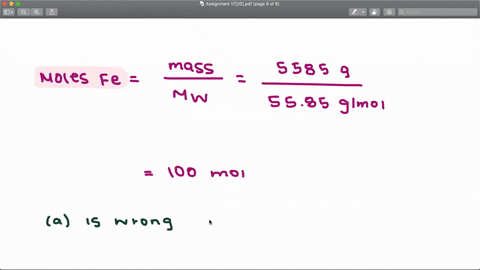 Assignment 17(20).pdf (page 8 of 9)
Moles Fe = mass / MW = 5585 g / 55.85 g/mol
= 100 mol
(a) is wrong